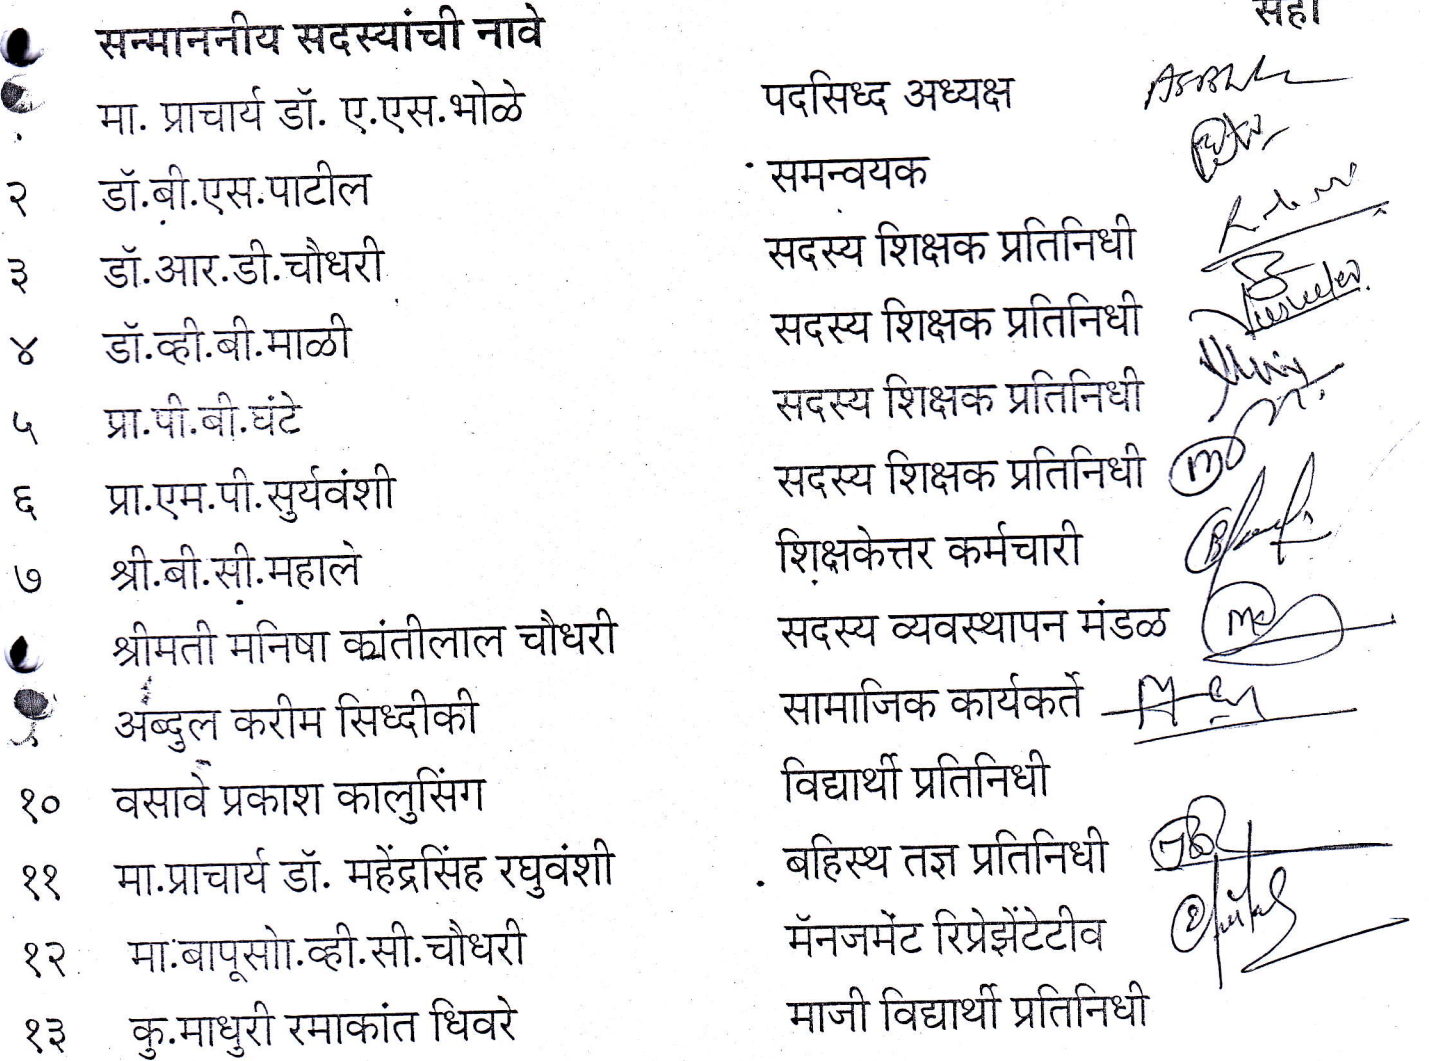 सन्माननीय सदस्यांची नावे सही
मा. प्राचार्य डॉ. ए.एस.भोळे पदसिध्द अध्यक्ष
२ डॉ.बी.एस.पाटील समन्वयक
३ डॉ.आर.डी.चौधरी सदस्य शिक्षक प्रतिनिधी
४ डॉ.व्ही.बी.माळी सदस्य शिक्षक प्रतिनिधी
५ प्रा.पी.बी.घंटे सदस्य शिक्षक प्रतिनिधी
६ प्रा.एम.पी.सुर्यवंशी सदस्य शिक्षक प्रतिनिधी
७ श्री.बी.सी.महाले शिक्षकेत्तर कर्मचारी
श्रीमती मनिषा कांतीलाल चौधरी सदस्य व्यवस्थापन मंडळ
अब्दुल करीम सिध्दीकी सामाजिक कार्यकर्ते
१० वसावे प्रकाश कालुसिंग विद्यार्थी प्रतिनिधी
११ मा.प्राचार्य डॉ. महेंद्रसिंह रघुवंशी बहिस्थ तज्ञ प्रतिनिधी
१२ मा.बापूसाो.व्ही.सी.चौधरी मॅनजमेंट रिप्रेझेंटेटीव
१३ कु.माधुरी रमाकांत धिवरे माजी विद्यार्थी प्रतिनिधी